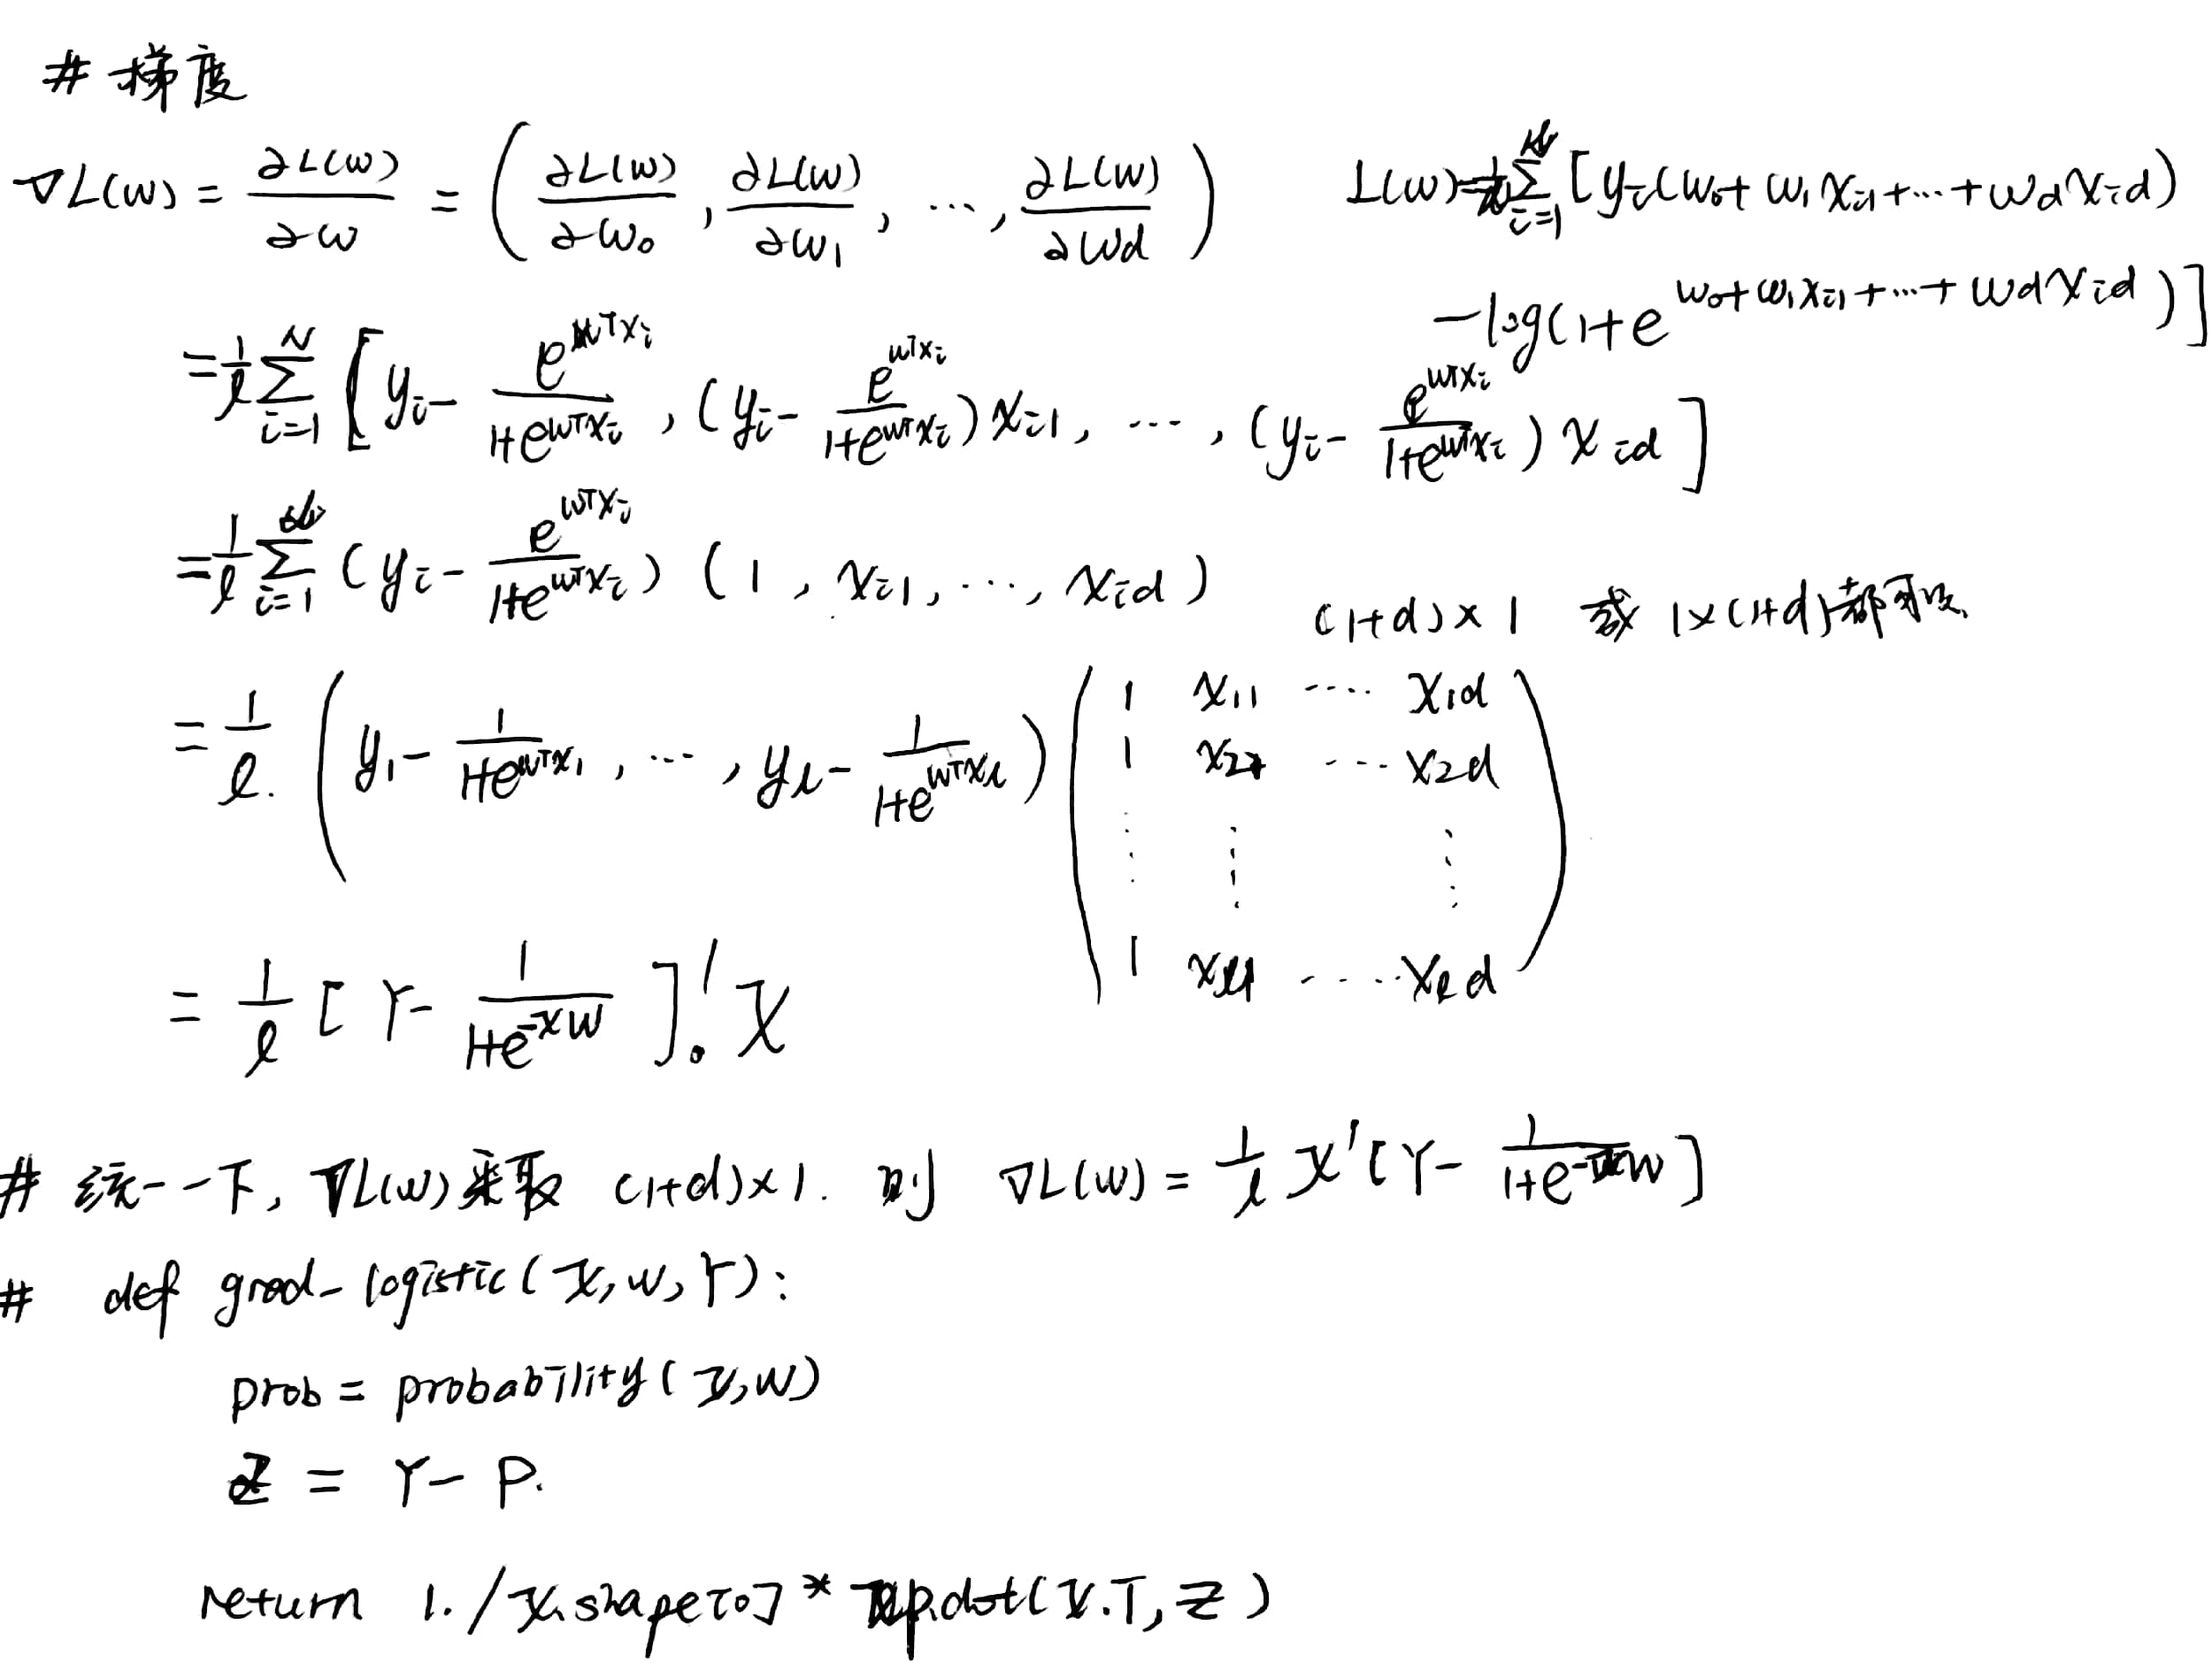 # 梯度
∇L(w) = ∂L(w)/∂w = ( ∂L(w)/∂w₀ , ∂L(w)/∂w₁ , ⋯, ∂L(w)/∂wd )
L(w) = Σ_{i=1} [yi(w₀+w₁xi1+⋯+wdxid)
−log(1+e^{w₀+w₁xi1+⋯+wdxid})]
= 1/l Σ_{i=1}^{N} [ yi − e^{wᵀxi}/(1+e^{wᵀxi}) , (yi − e^{wᵀxi}/(1+e^{wᵀxi}))xi1, ⋯ , (yi − e^{wᵀxi}/(1+e^{wᵀxi}))xid ]
= 1/l Σ_{i=1} (yi − e^{wᵀxi}/(1+e^{wᵀxi})) (1, xi1, ⋯, xid)
(1+d)×1 或 1×(1+d)都可以
= 1/l. ( y₁ − 1/(1+e^{wᵀx₁}), ⋯, yl − 1/(1+e^{wᵀxl}) ) ( 1 x11 ⋯ x1d
1 x22 ⋯ x2d
⋮ ⋮ ⋮
1 xl1 ⋯ xld )
= 1/l [ Y − 1/(1+e^{-xw}) ]'. X
# 统一一下, ∇L(w) 采取 (1+d)×1. 则 ∇L(w) = 1/l X'[Y − 1/(1+e^{-xw})]
# def grad-logistic(X, w, Y):
prob = probability(X, w)
Z = Y − P.
return 1./X.shape[0] * np.dot(X.T, Z)